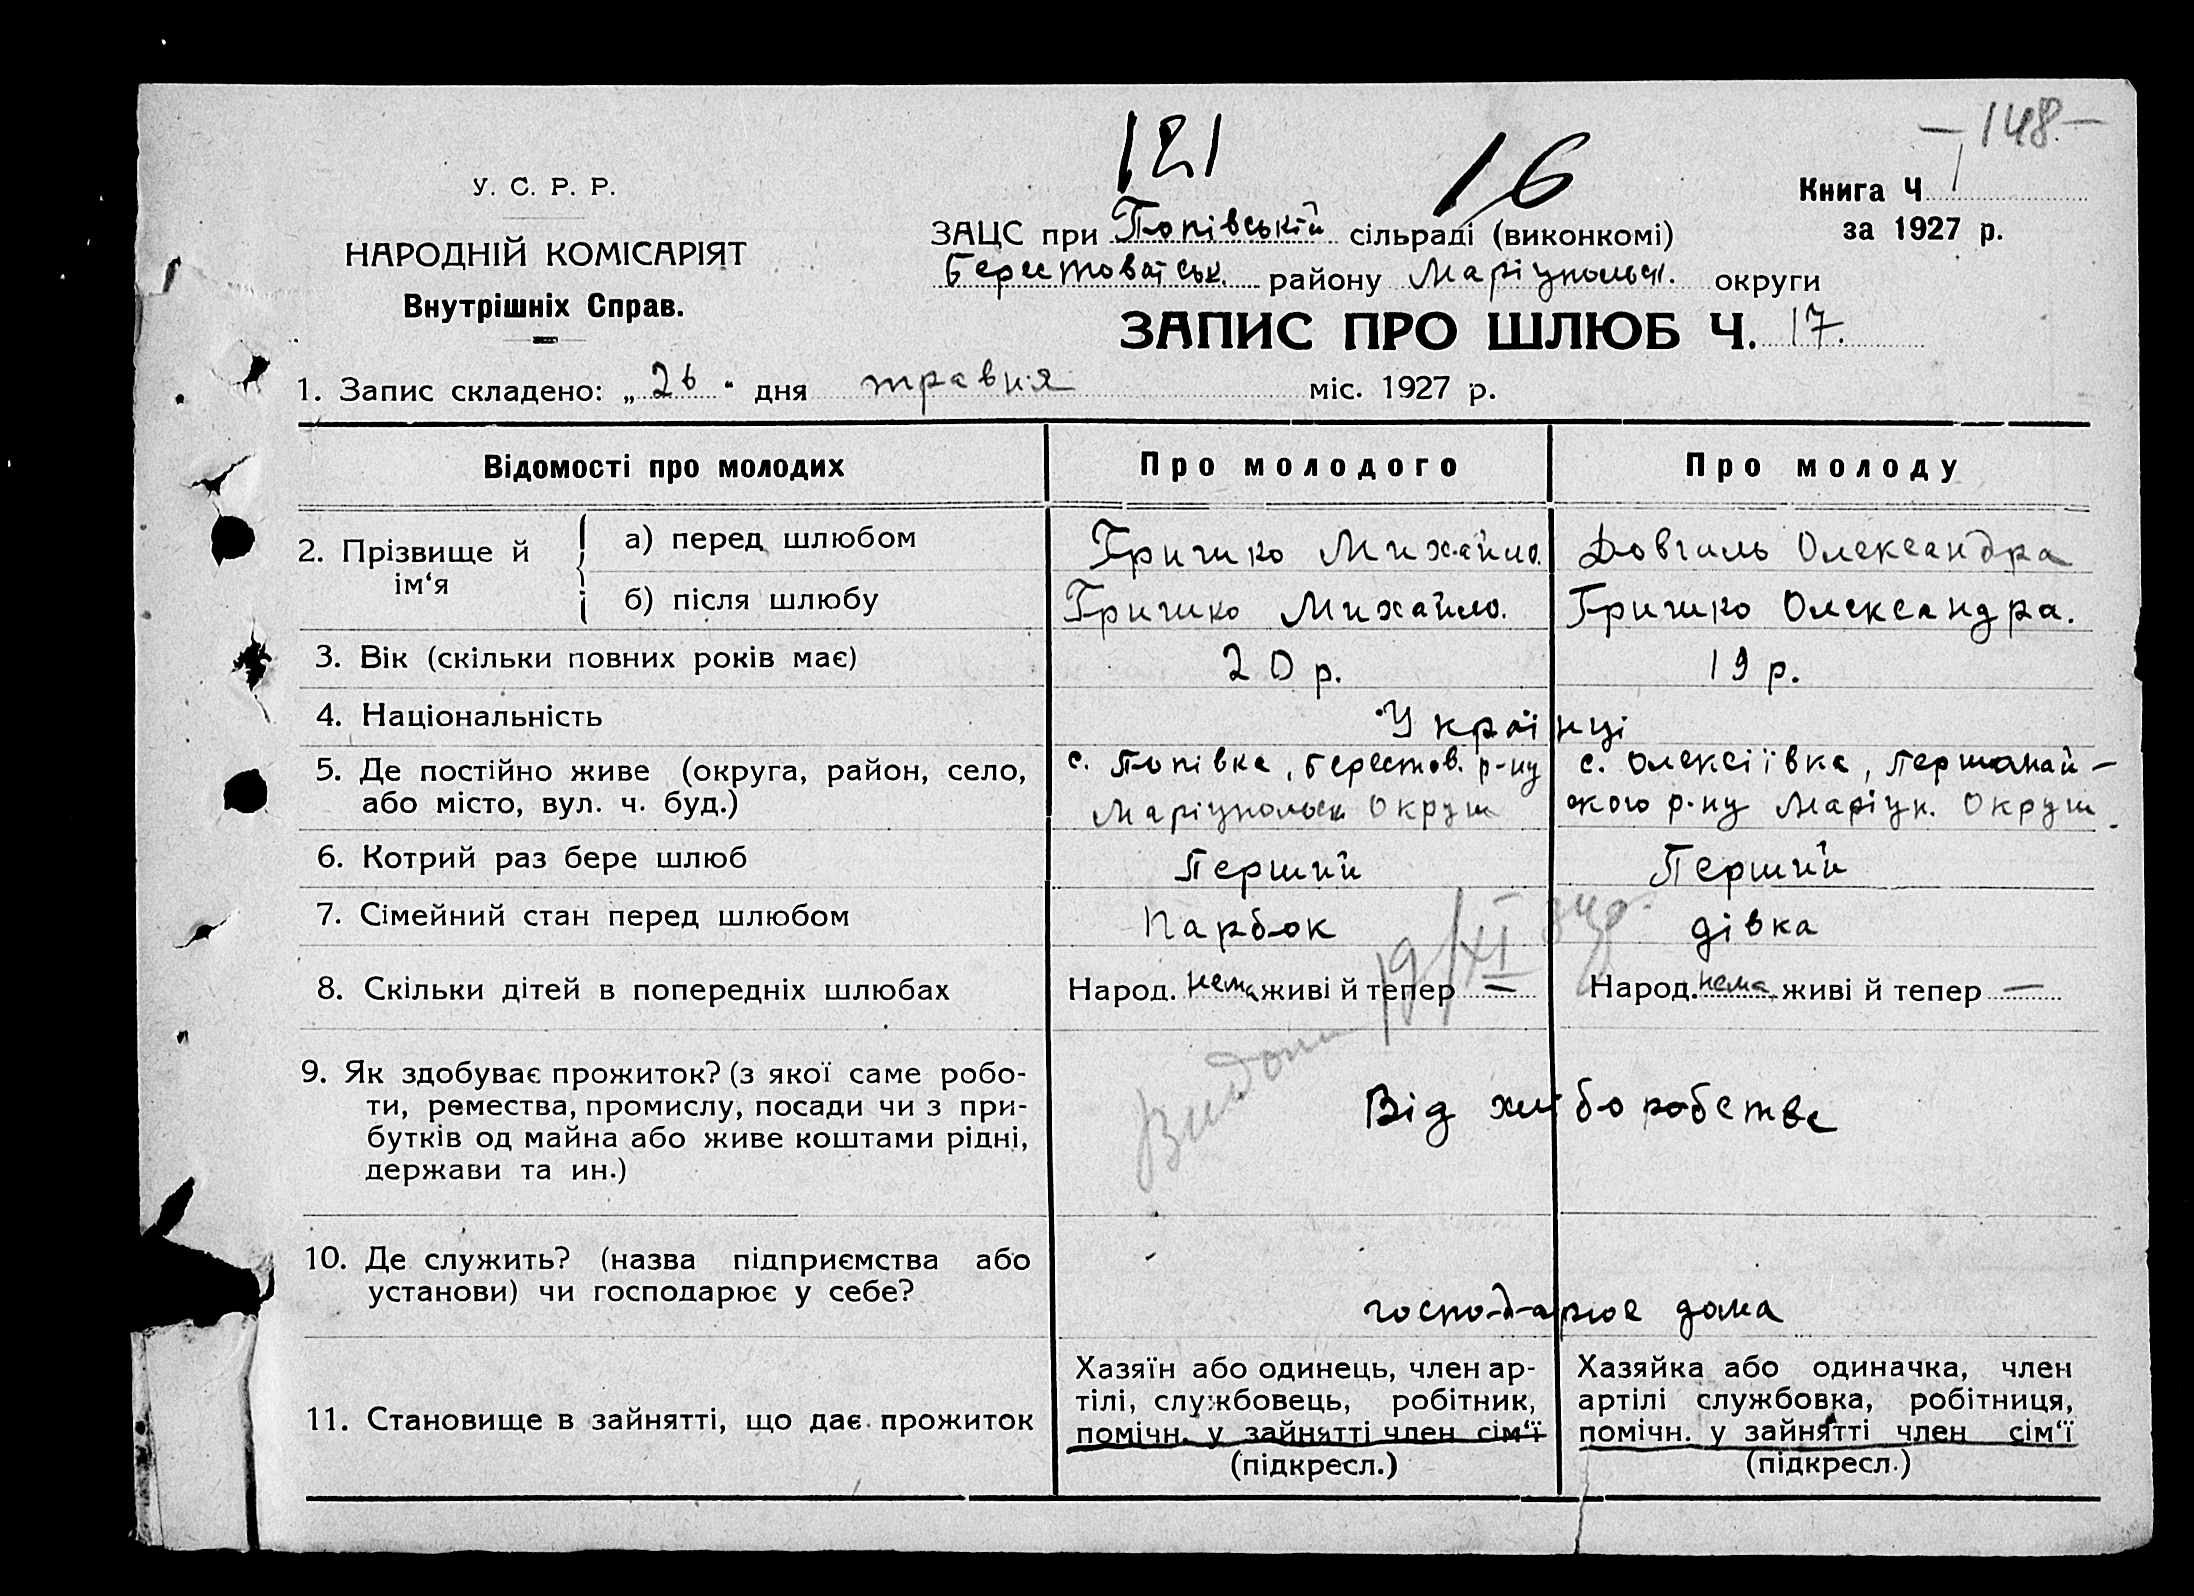 — 148 —
121
16
У. С. Р. Р.
НАРОДНІЙ КОМІСАРІЯТ
Внутрішніх Справ.
Книга Ч. 1
за 1927 р.
ЗАЦС при Попівській сільраді (виконкомі)
Берестоватськ. району Маріупольськ. округи
ЗАПИС ПРО ШЛЮБ Ч. 17.
1. Запис складено: „26" дня травня міс. 1927 р.
Відомості про молодих Про молодого Про молоду
2. Прізвище й ім‘я
а) перед шлюбом Гришко Михайло. Довгиль Олександра
б) після шлюбу Гришко Михайло. Гришко Олександра.
3. Вік (скільки повних років має) 20 р. 19 р.
4. Національність Українці
5. Де постійно живе (округа, район, село,
або місто, вул. ч. буд.)
с. Попівка, Берестов. р-ну
Маріупольськ Округи
с. Олексіївка, Першомай-
ського р-ну Маріуп. Округи.
6. Котрий раз бере шлюб Перший Перший
7. Сімейний стан перед шлюбом Парбок дівка
8. Скільки дітей в попередніх шлюбах Народ. нема живі й тепер — Народ. нема живі й тепер —
19/XI 34р.
9. Як здобуває прожиток? (з якої саме робо-
ти, ремества, промислу, посади чи з при-
бутків од майна або живе коштами рідні,
держави та ин.)
Від хліборобства
10. Де служить? (назва підприємства або
установи) чи господарює у себе?
господарює дома
11. Становище в зайнятті, що дає прожиток
Хазяїн або одинець, член ар-
тілі, службовець, робітник,
помічн. у зайнятті член сім‘ї
(підкресл.)
Хазяйка або одиначка, член
артілі службовка, робітниця,
помічн. у зайнятті член сім‘ї
(підкресл.)